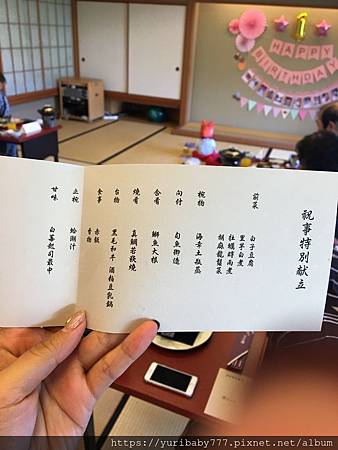 祝事特別献立
前菜
白子豆腐
里芋白煮
牡蠣時雨煮
胡麻龍髭菜
椀物
海幸土瓶蒸
向付
旬魚御造
合肴
鰤魚大根
焼肴
真鯛若狭焼
台物
黒毛和牛 酒粕豆乳鍋
食事
赤飯
香物
止椀
蛤潮汁
甘味
白苺起司最中
1
HAPPY
BIRTHDAY
https://yuribaby777.pixnet.net/album